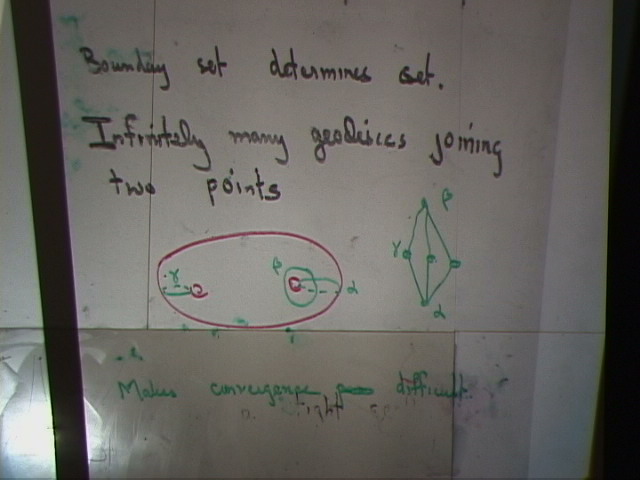 Bounday set determines set.
Infinitely many geodesics joining
two points
β
γ
γ β α
α
Makes convergence difficult.
right